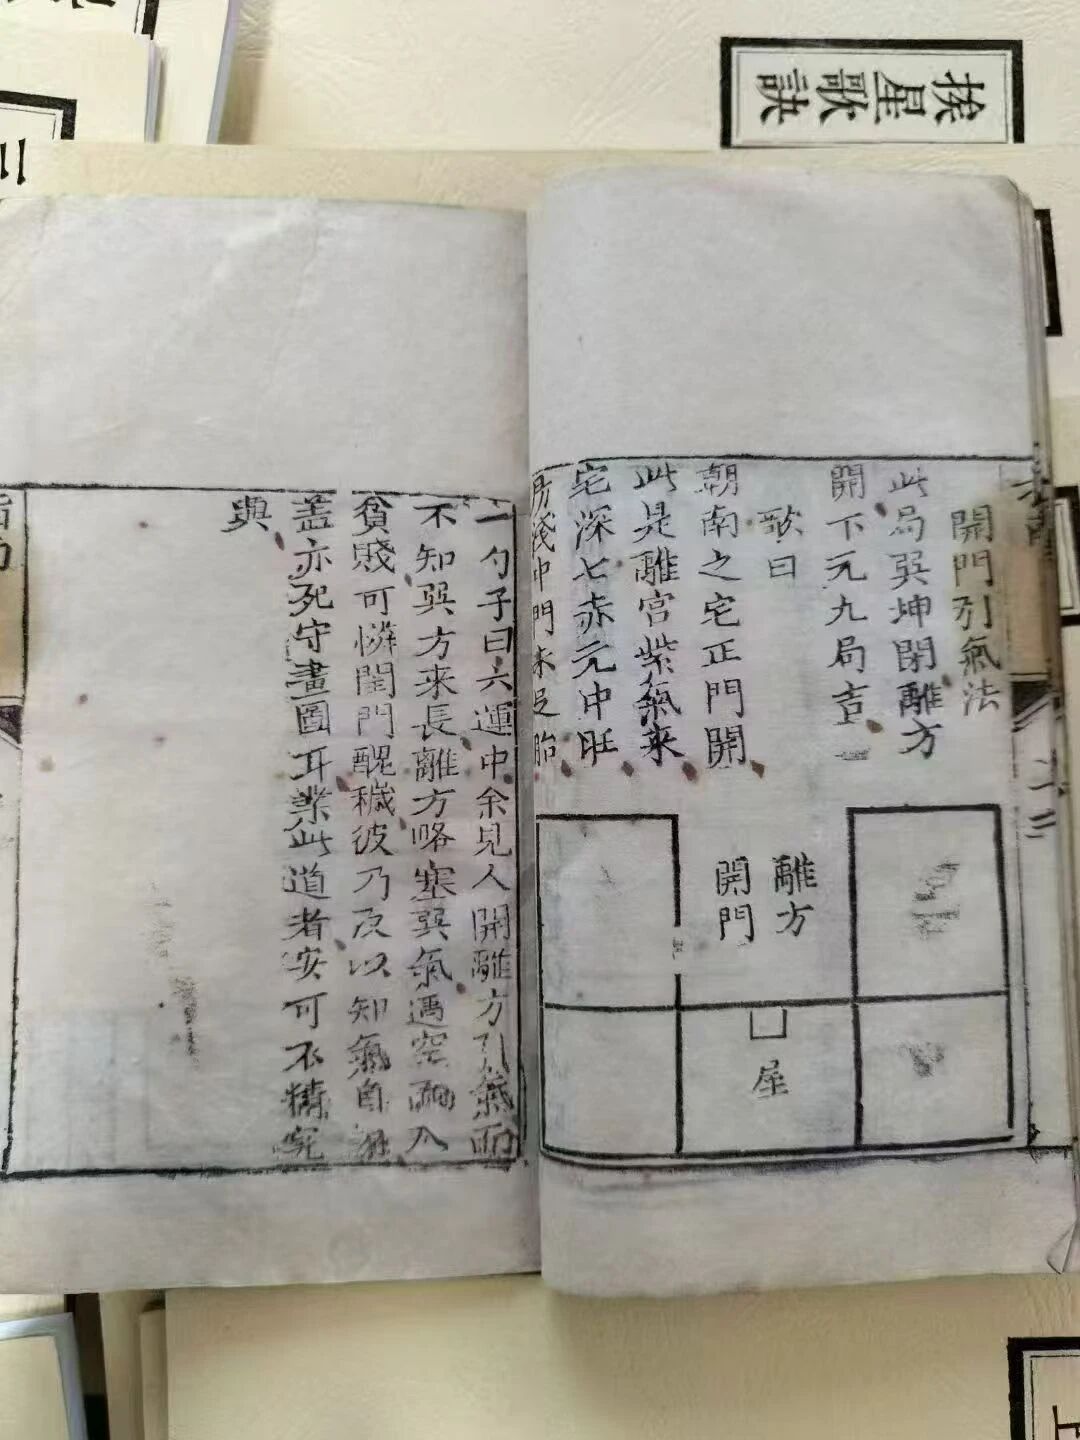 挨星歌訣
開門引氣法
此局巽坤閉離方
開下元九局吉
歌曰
朝南之宅正門開
此是離宮紫氣来
宅深七赤元中旺
房淺中門未足胎
離方
開門
屋
一勺子曰六運中余見人開離方引氣而
不知巽方来長離方略塞巽氣遇空而入
貧賤可憐閨門醜穢彼乃反以知氣自
蓋亦死守畫圖耳業此道者安可不精究
與